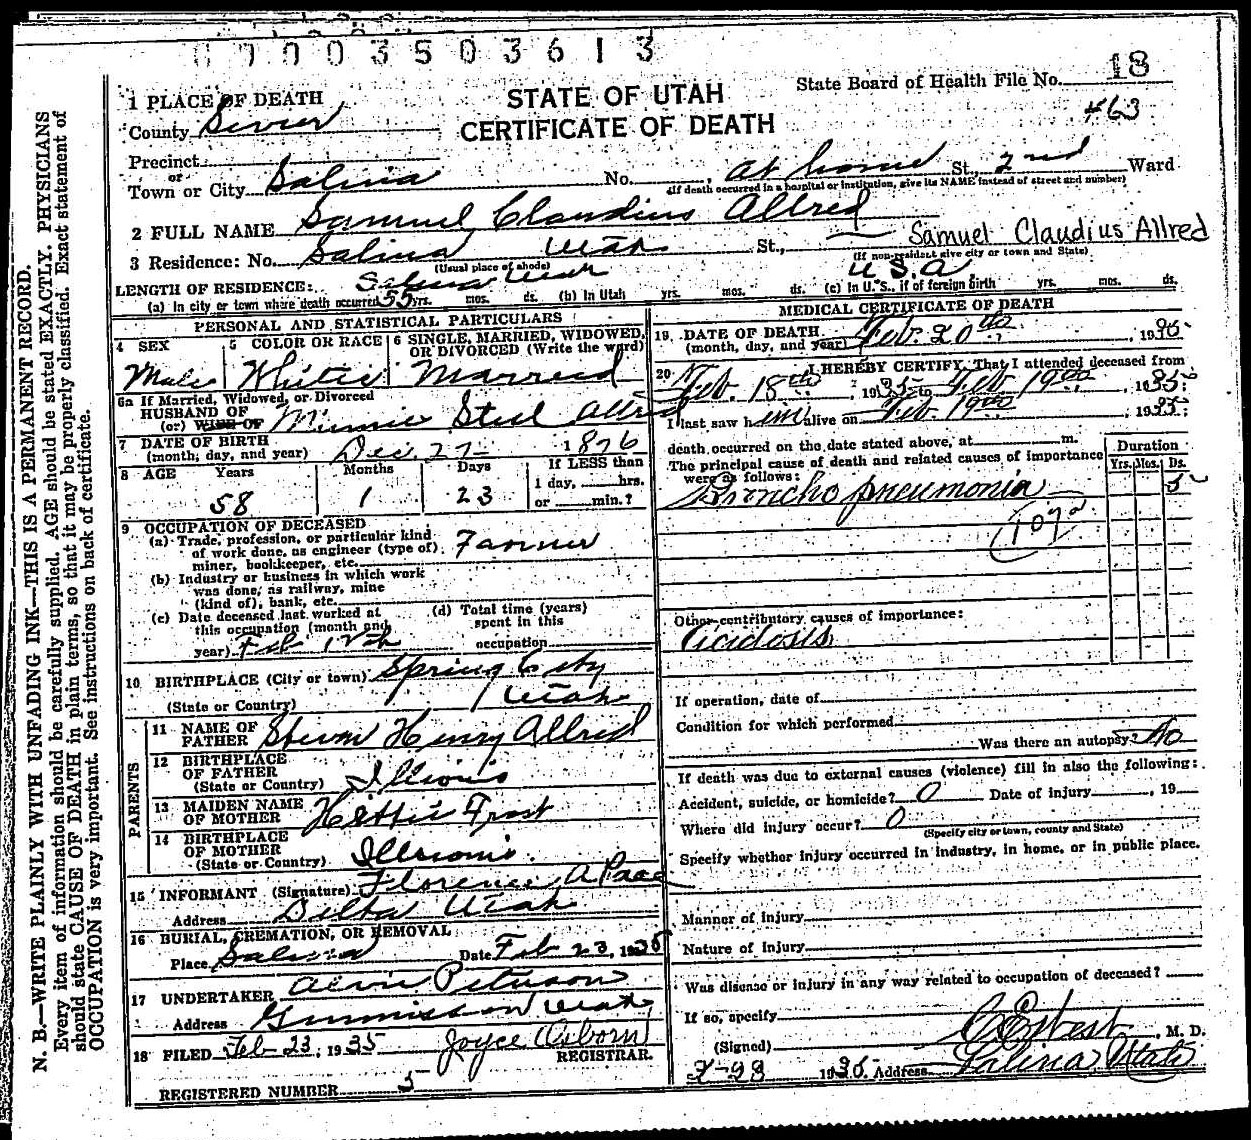 0 7 0 0 3 5 0 3 6 1 3
State Board of Health File No. 18
463
STATE OF UTAH
CERTIFICATE OF DEATH
1 PLACE OF DEATH
County Sevier
Precinct
or
Town or City Salina No. , At home St., 2nd Ward
(If death occurred in a hospital or institution, give its NAME instead of street and number)
2 FULL NAME Samuel Claudius Allred
Samuel Claudius Allred
3 Residence: No. Salina Utah St.,
(Usual place of abode) (If non-resident give city or town and State)
LENGTH OF RESIDENCE: Salina Utah U S A.
(a) In city or town where death occurred 55 yrs. mos. ds. (b) In Utah yrs. mos. ds. (c) In U. S., if of foreign birth yrs. mos. ds.
PERSONAL AND STATISTICAL PARTICULARS
4 SEX 5 COLOR OR RACE 6 SINGLE, MARRIED, WIDOWED, OR DIVORCED (Write the word)
Male White Married
6a If Married, Widowed, or Divorced
HUSBAND OF
(or) WIFE OF Minnie Steel Allred
7 DATE OF BIRTH
(month, day, and year) Dec. 27 1876
8 AGE Years Months Days If LESS than
1 day, hrs.
or min.?
58 1 23
9 OCCUPATION OF DECEASED
(a) Trade, profession, or particular kind
of work done, as engineer (type of) Farmer
miner, bookkeeper, etc.
(b) Industry or business in which work
was done, as railway, mine
(kind of), bank, etc.
(c) Date deceased last worked at
this occupation (month and
year) Feb 12th
(d) Total time (years)
spent in this
occupation
10 BIRTHPLACE (City or town) Spring City
(State or Country) Utah
PARENTS
11 NAME OF
FATHER Henry Allred
12 BIRTHPLACE
OF FATHER
(State or Country) Illionis
13 MAIDEN NAME
OF MOTHER Hettie Frost
14 BIRTHPLACE
OF MOTHER
(State or Country) Illionis.
15 INFORMANT (Signature) Florence A Pace
Address Delta Utah
16 BURIAL, CREMATION, OR REMOVAL
Place Salina Date Feb 23, 1935
17 UNDERTAKER Alvie Peterson
Address Gunnison Utah
18 FILED Feb 23, 1935 Joyce Osborn
REGISTRAR.
REGISTERED NUMBER 5
MEDICAL CERTIFICATE OF DEATH
19. DATE OF DEATH
(month, day, and year) Feb. 20th, 1935
20. I HEREBY CERTIFY, That I attended deceased from
Feb. 18th, 1935 to Feb 19th, 1935.
I last saw him alive on Feb 19th, 1935;
death occurred on the date stated above, at m.
The principal cause of death and related causes of importance
were as follows:
Duration
Yrs. Mos. Ds.
Broncho pneumonia 5
107
Other contributory causes of importance:
Acidosis
If operation, date of
Condition for which performed
Was there an autopsy? No
If death was due to external causes (violence) fill in also the following:
Accident, suicide, or homicide? 0 Date of injury , 19
Where did injury occur? 0
(Specify city or town, county and State)
Specify whether injury occurred in industry, in home, or in public place.
Manner of injury
Nature of injury
Was disease or injury in any way related to occupation of deceased?
If so, specify
(Signed) M. D.
2-23 1935. Address Salina Utah
N. B.—WRITE PLAINLY WITH UNFADING INK—THIS IS A PERMANENT RECORD.
Every item of information should be carefully supplied. AGE should be stated EXACTLY. PHYSICIANS
should state CAUSE OF DEATH in plain terms, so that it may be properly classified. Exact statement of
OCCUPATION is very important. See instructions on back of certificate.